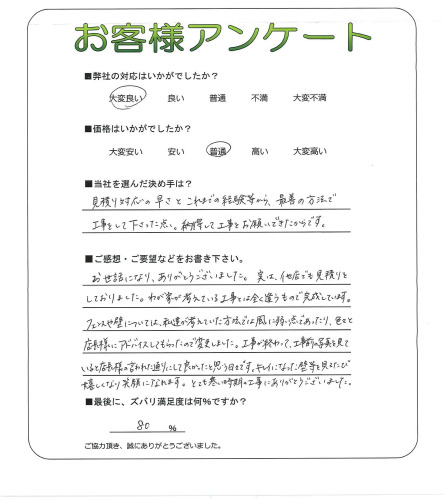 お客様アンケート
■弊社の対応はいかがでしたか？
大変良い 良い 普通 不満 大変不満
■価格はいかがでしたか？
大変安い 安い 普通 高い 大変高い
■当社を選んだ決め手は？
見積り対応の早さと これまでの経験等から、最善の方法で
工事をして下さった点。納得して工事をお願いできたからです。
■ご感想・ご要望などをお書き下さい。
お世話になり、ありがとうございました。実は、他店でも見積りを
しておりました。わが家が考えている工事とは全く違うもので完成しています。
フェンスや壁については、私達が考えていた方法では風に弱い点であったり、色々と
店長様にアドバイスしてもらったので変更しました。工事が終わって、工事前の写真を見て
いると店長様の言われた通りにして良かったと思う日々です。キレイになった壁等を見るたび
嬉しくなり笑顔になれます。とても寒い時期の工事にありがとうございました。
■最後に、ズバリ満足度は何％ですか？
80 ％
ご協力頂き、誠にありがとうございました。